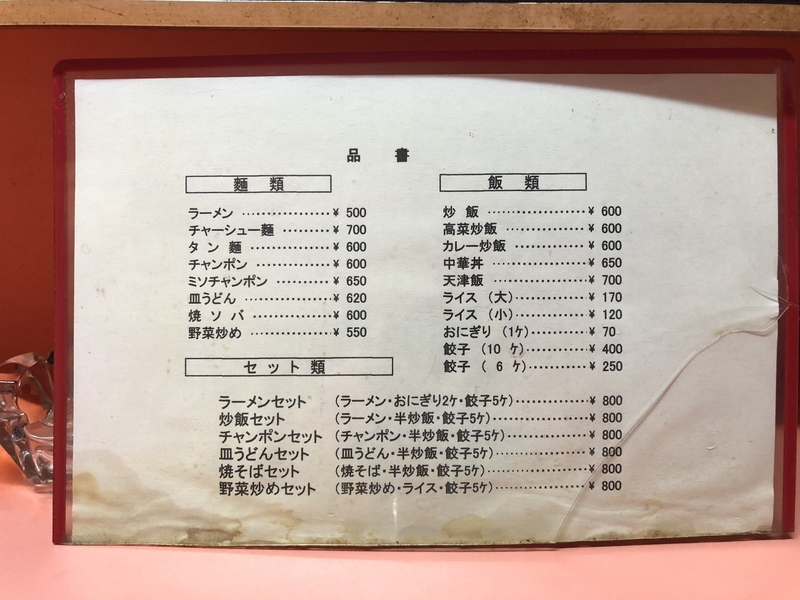 品 書
麵 類
ラーメン ・・・・・・・・・・・・・・・・・・¥ 500
チャーシュー麺 ・・・・・・・・・・¥ 700
タ ン 麺 ・・・・・・・・・・・・・・・・・¥ 600
チャンポン ・・・・・・・・・・・・・・・・¥ 600
ミソチャンポン ・・・・・・・・・・・・¥ 650
皿うどん ・・・・・・・・・・・・・・・・・・¥ 620
焼 ソ バ ・・・・・・・・・・・・・・・・・¥ 600
野菜炒め ・・・・・・・・・・・・・・・・・¥ 550
飯 類
炒 飯 ・・・・・・・・・・・・・・・・・・・・¥ 600
高菜炒飯 ・・・・・・・・・・・・・・・・・¥ 600
カレー炒飯 ・・・・・・・・・・・・・・・¥ 600
中華丼 ・・・・・・・・・・・・・・・・・・・¥ 650
天津飯 ・・・・・・・・・・・・・・・・・・・¥ 700
ライス (大)・・・・・・・・・・・・・・・¥ 170
ライス (小)・・・・・・・・・・・・・・・¥ 120
おにぎり (1ケ)・・・・・・・・・・・・¥ 70
餃子 (10 ケ)・・・・・・・・・・・・・¥ 400
餃子 ( 6 ケ)・・・・・・・・・・・・・¥ 250
セ ッ ト 類
ラーメンセット (ラーメン・おにぎり2ケ・餃子5ケ)・・・・・・・・・・・・・・¥ 800
炒飯セット (ラーメン・半炒飯・餃子5ケ)・・・・・・・・・・・・・・・・・・¥ 800
チャンポンセット (チャンポン・半炒飯・餃子5ケ)・・・・・・・・・・・・・・・¥ 800
皿うどんセット (皿うどん・半炒飯・餃子5ケ)・・・・・・・・・・・・・・・・・¥ 800
焼そばセット (焼そば・半炒飯・餃子5ケ)・・・・・・・・・・・・・・・・・・¥ 800
野菜炒めセット (野菜炒め・ライス・餃子5ケ)・・・・・・・・・・・・・・・・・¥ 800